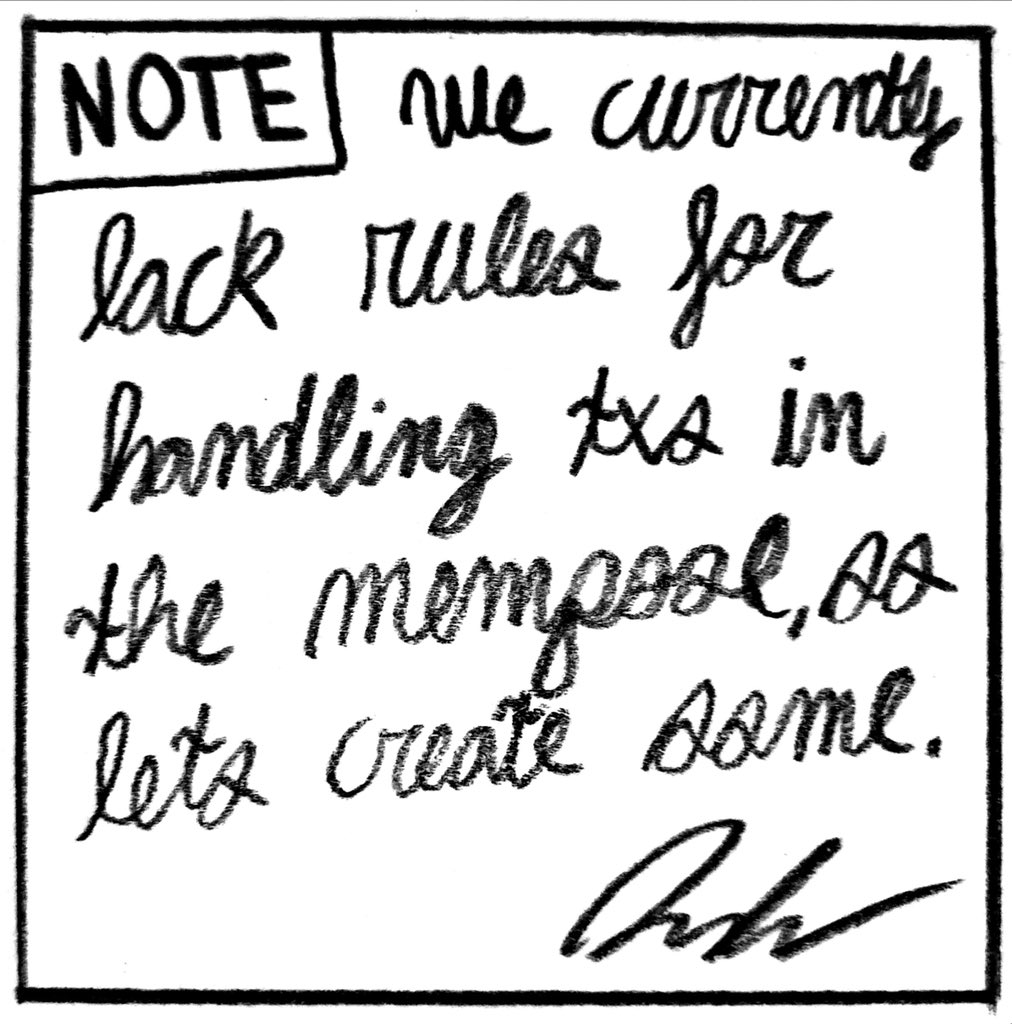 NOTE we currently
lack rules for
handling txs in
the mempool, so
lets create some.